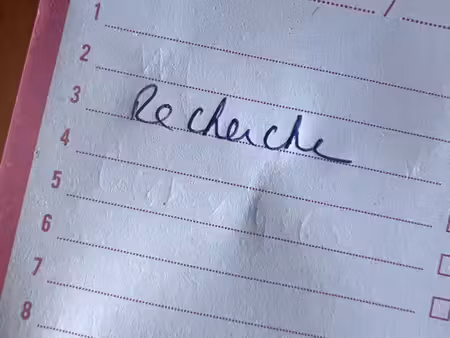 1
2
3 Recherche
4
5
6
7
8